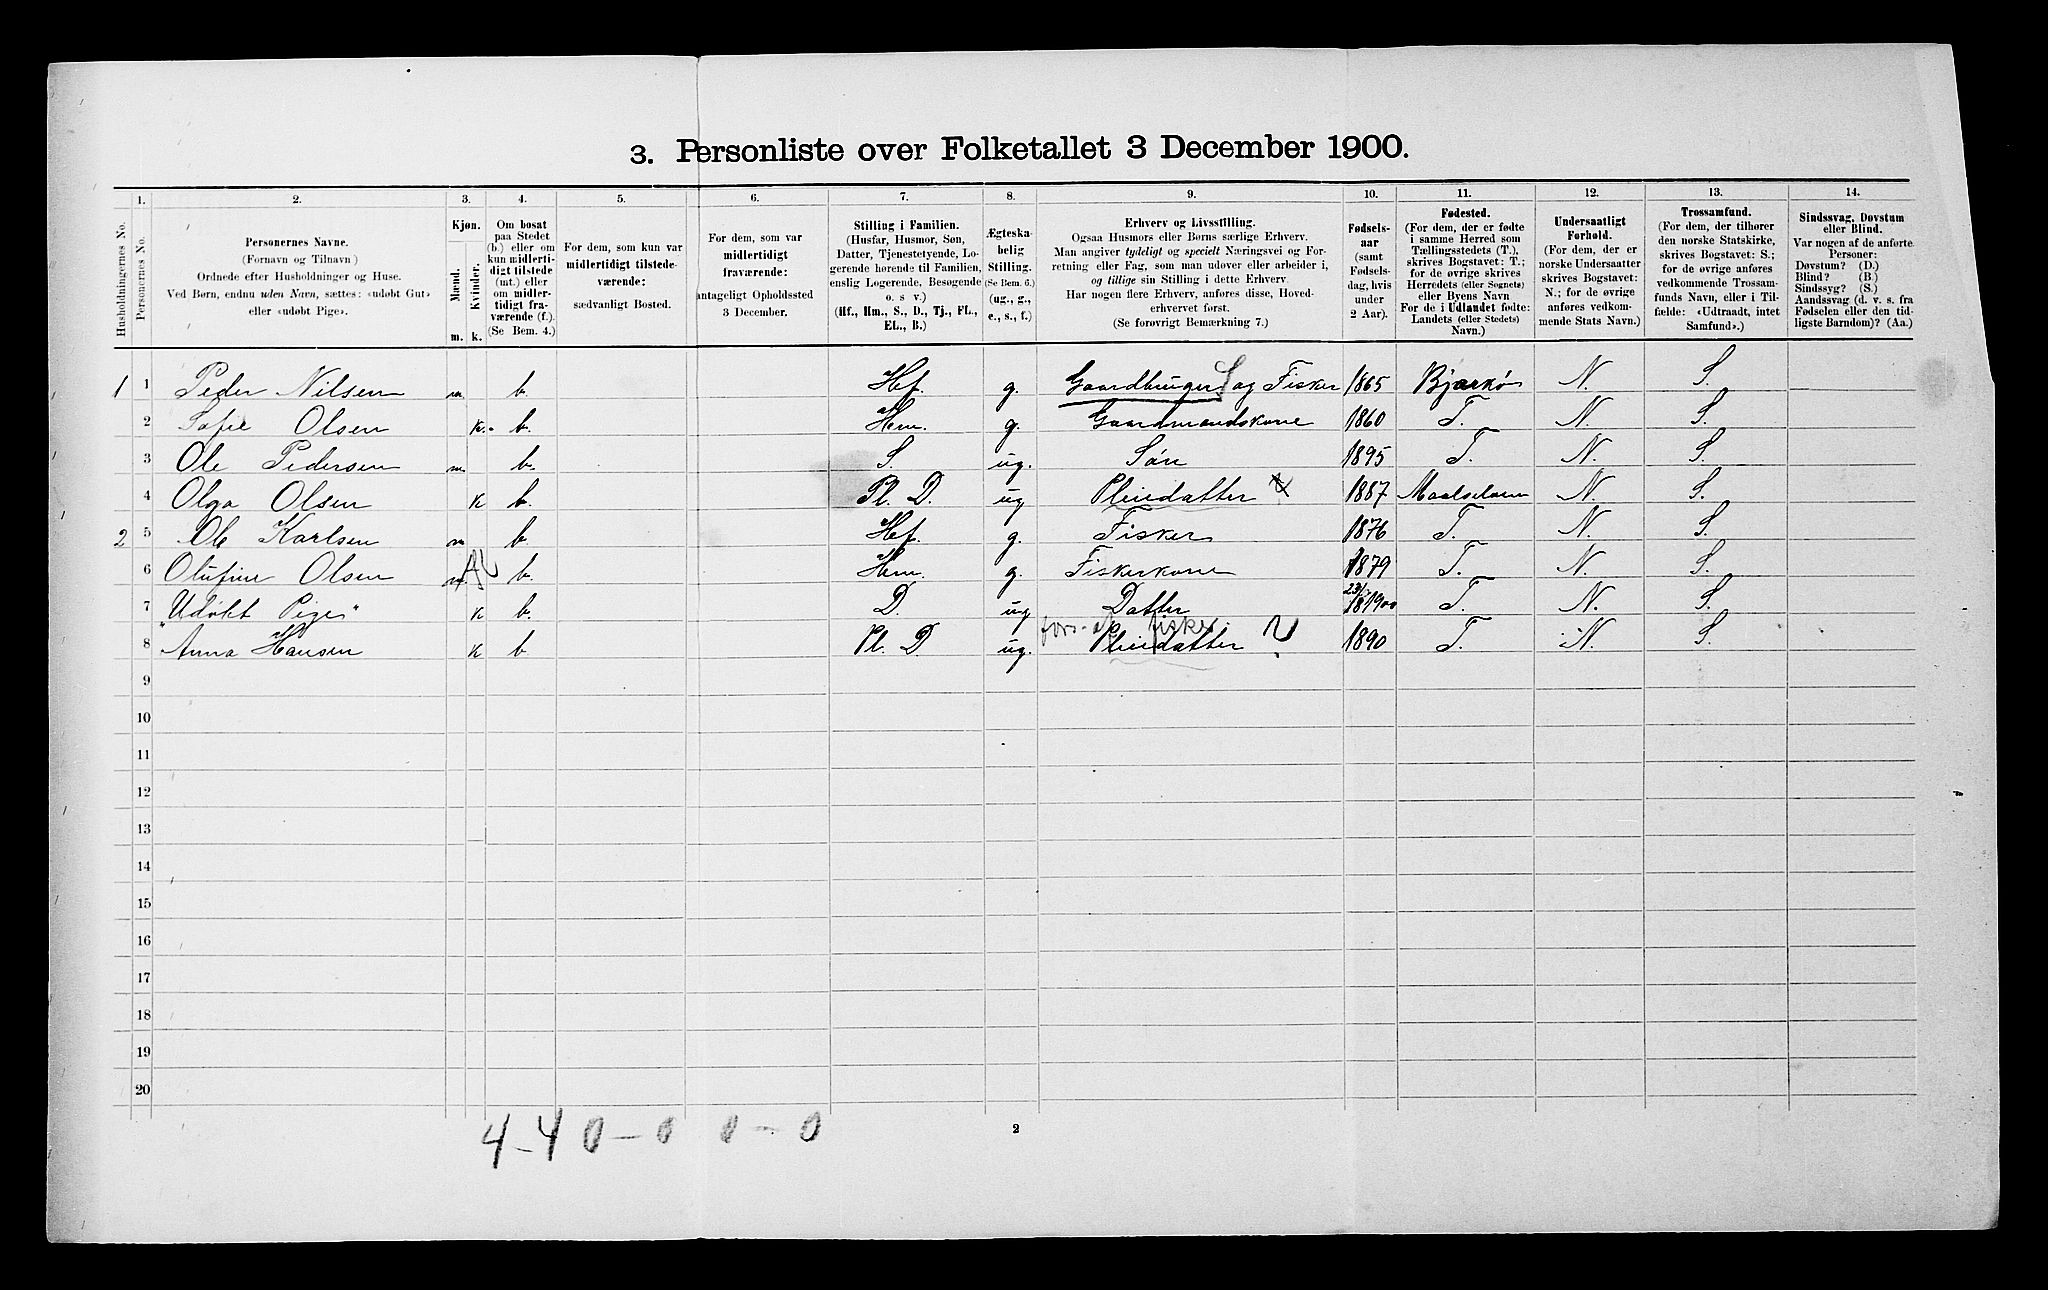 3. Personliste over Folketallet 3 December 1900.
1. 2. 3. 4. 5. 6. 7. 8. 9. 10. 11. 12. 13. 14.
Husholdningernes No.
Personernes No.
Personernes Navne.
(Fornavn og Tilnavn)
Ordnede efter Husholdninger og Huse.
Ved Børn, endnu uden Navn, sættes: «udøbt Gut»
eller «udøbt Pige».
Kjøn.
Mænd. Kvinder.
m. k.
Om bosat
paa Stedet
(b.) eller om
kun midlerti-
digt tilstede
(mt.) eller
om midler-
tidigt fra-
værende (f.).
(Se Bem. 4.)
For dem, som kun var
midlertidigt tilstede-
værende:
sædvanligt Bosted.
For dem, som var
midlertidigt
fraværende:
antageligt Opholdssted
3 December.
Stilling i Familien.
(Husfar, Husmor, Søn,
Datter, Tjenestetyende, Lo-
gerende hørende til Familien,
enslig Logerende, Besøgende
o. s v.)
(Hf., Hm., S., D., Tj., FL.,
EL., B.)
Ægteska-
belig
Stilling.
(Se Bem. 6.)
(ug., g.,
e., s., f.)
Erhverv og Livsstilling.
Ogsaa Husmors eller Børns særlige Erhverv.
Man angiver tydeligt og specielt Næringsvei og For-
retning eller Fag, som man udover eller arbeider i,
og tillige sin Stilling i dette Erhverv.
Har nogen flere Erhverv, anføres disse, Hoved-
erhvervet først.
(Se forøvrigt Bemærkning 7.)
Fødsels-
aar
(samt
Fødsels-
dag, hvis
under
2 Aar).
Fødested.
(For dem, der er fødte
i samme Herred som
Tællingsstedets (T.),
skrives Bogstavet: T.;
for de øvrige skrives
Herredets (eller Sognets)
eller Byens Navn
For de i Udlandet fødte:
Landets (eller Stedets)
Navn.)
Undersaatligt
Forhold.
(For dem, der er
norske Undersaatter
skrives Bogstavet:
N.; for de øvrige
anføres vedkom-
mende Stats Navn.)
Trossamfund.
(For dem, der tilhører
den norske Statskirke,
skrives Bogstavet: S.;
for de øvrige anføres
vedkommende Trossam-
funds Navn, eller i Til-
fælde: «Udtraadt, intet
Samfund».)
Sindssvag, Døvstum
eller Blind.
Var nogen af de anførte
Personer:
Døvstum? (D.)
Blind? (B.)
Sindssyg? (S.)
Aandssvag (d. v. s. fra
Fødselen eller den tid-
ligste Barndom)? (Aa.)
1 1 Peder Nilsen m. b. Hf. g. Gaardbruger S og Fisker 1865 Bjarkø N. S.
2 Sofie Olsen k. b. Hm. g. Gaardmandskone 1860 T. N. S.
3 Ole Pedersen m. b. S. ug. Søn 1895 T. N. S.
4 Olga Olsen k b. Pl. D. ug Pleiedatter 1887 Maalselven N. S.
2 5 Ole Karlsen m b. Hf. g. Fisker 1876 T. N. S.
6 Olufine Olsen m. b. Hm. g. Fiskerkone 1879 T. N. S.
7 "Udøbt Pige" k b. D. ug Datter 1900 T. N. S.
fors. af fisker
8 Anna Hansen k b. Pl. D. ug. Pleiedatter 1890 T. N. S.
9
10
11
12
13
14
15
16
17
18
19
20
4-4 0-0 0-0
2